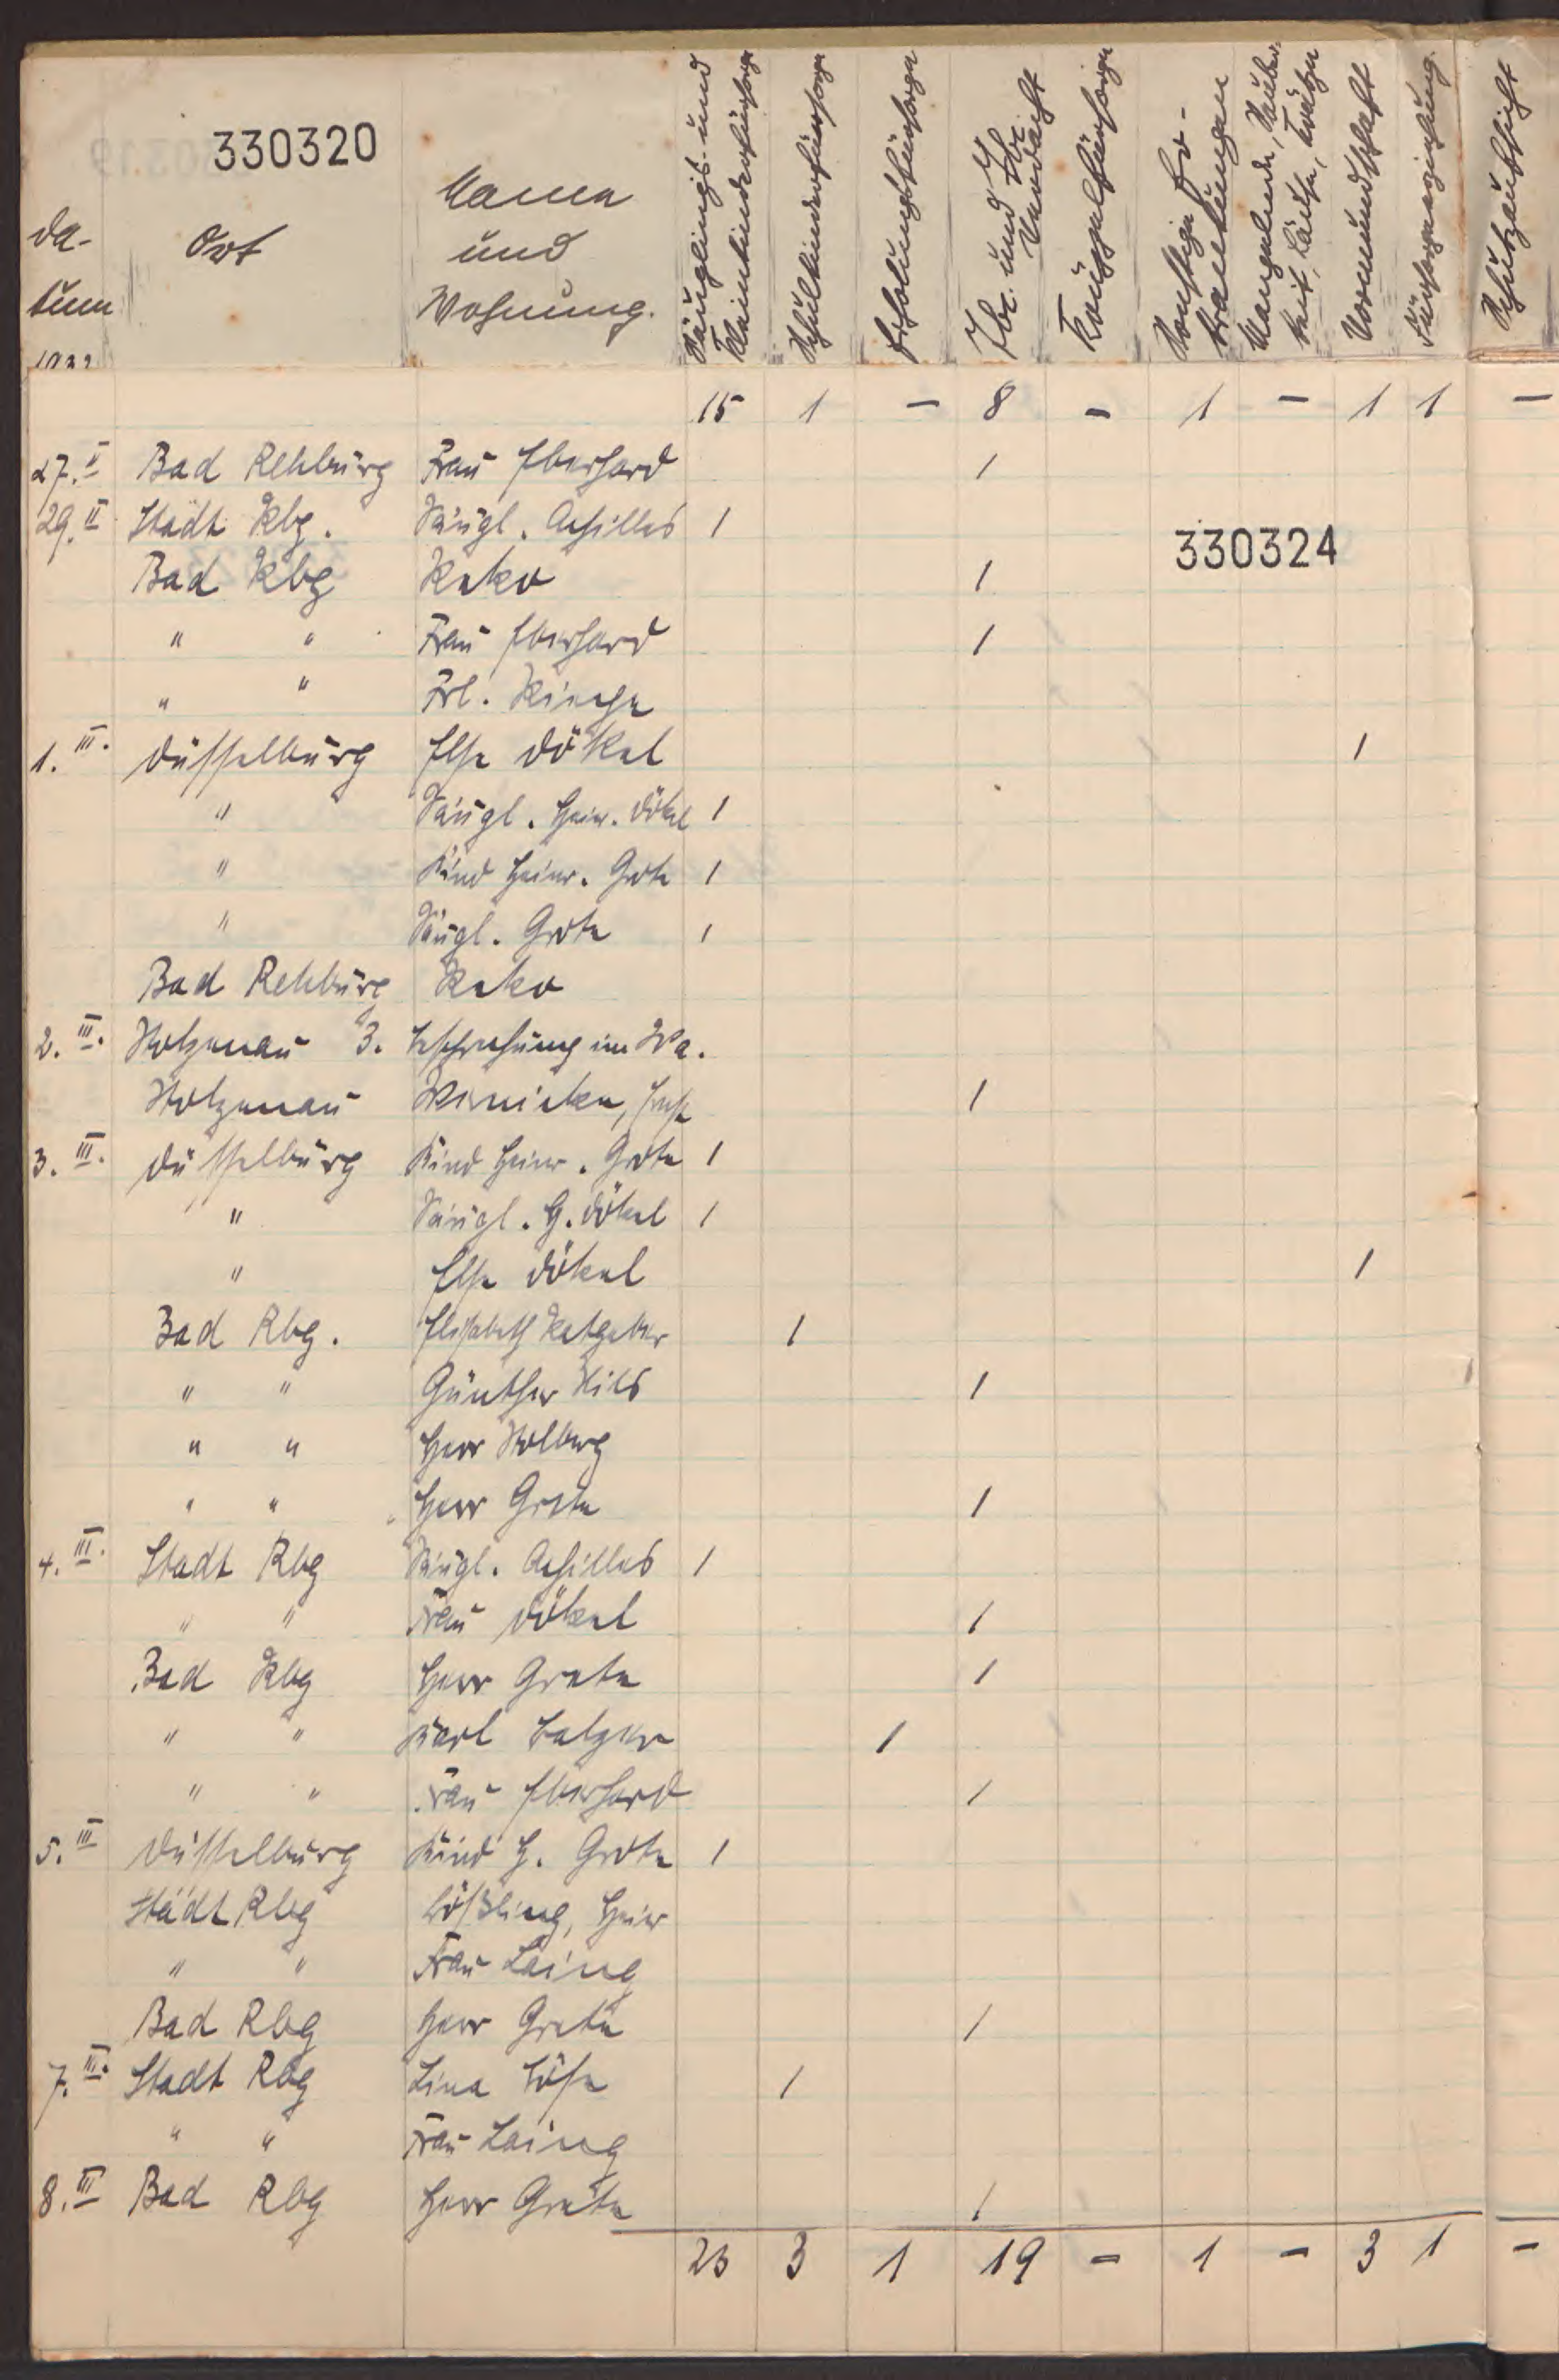 330320
Da-
tum
1932
Ort
Name
und
Wohnung.
Säuglings- und
Kleinkinderfürsorge
Schulkinderfürsorge
Erholungsfürsorge
Tbc. und Tbc.
Verdacht
Krüppelfürsorge
Sonstige Er-
krankungen
Mangelnde Sauber-
keit, Läuse, Krätze
Vormundschaft
Fürsorgeerziehung
Schutzaufsicht
15 1 – 8 – 1 – 1 1 –
27. II Bad Rehburg Frau Eberhard 1
29. II Stadt Rbg. Säugl. Achilles 1
330324
Bad Rbg Reko 1
" " Frau Eberhard 1
" " Frl. Kinche
1. III. Düsselburg Else Dökel 1
" Säugl. Heinr. Dökel 1
" Kind Heinr. Grote 1
" Säugl. Grote 1
Bad Rehburg Reko
2. III. Stolzenau 3. Besprechung im Wa.
Stolzenau Wernicke, 1
3. III. Düsselburg Kind Heinr. Grote 1
" Säugl. H. Dökel 1
" Else Dökel 1
Bad Rbg. Elisabeth Ratgeber 1
" " Günther Hils 1
" " Herr Stolberg
" " Herr Grote 1
4. III. Stadt Rbg Säugl. Achilles 1
" " Frau Dökel 1
Bad Rbg Herr Grote 1
" " Karl 1
" " Frau Eberhard 1
5. III Düsselburg Kind H. Grote 1
Stadt Rbg Lößling, Heinr
" " Frau Laing
Bad Rbg Herr Grote 1
7. III. Stadt Rbg Lina Löhe 1
" " Frau Laing
8. III Bad Rbg Herr Grote 1
23 3 1 19 – 1 – 3 1 –